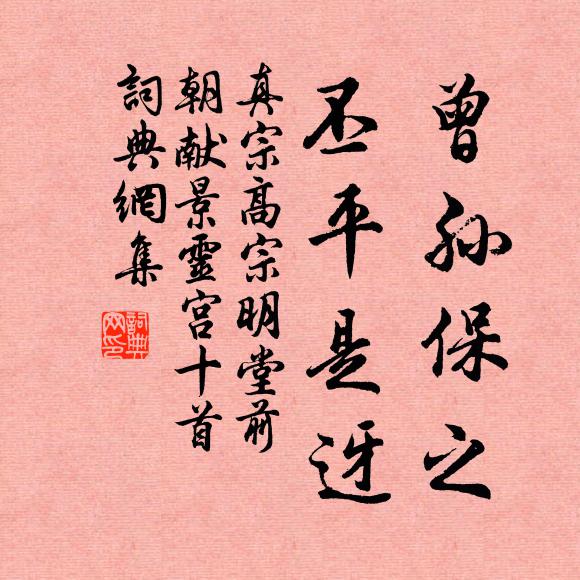 曾孫保之
丕平是迓
真宗高宗明堂前
朝献景靈宮十首
詞典網集
詞典
网印